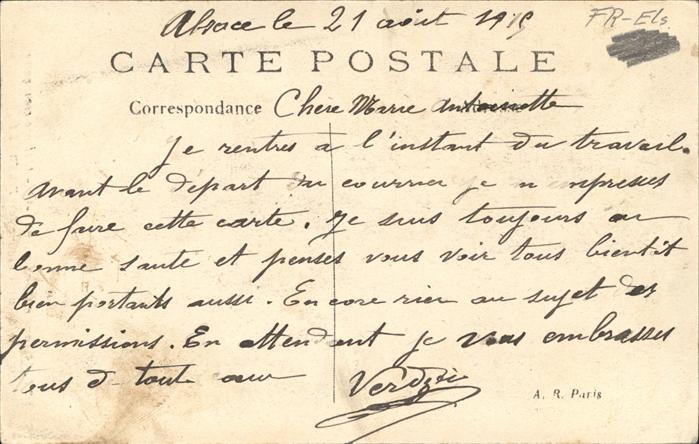 Alsace le 21 août 1915
FR-Els
CARTE POSTALE
Correspondance Chère Marie Antoinette
Je rentres a l'instant du travail.
avant le départ du courrier je m empresses
de faire cette carte. Je suis toujours en
bonne sante et penses vous voir tous bientôt
bien portants aussi. Encore rien au sujet des
permissions. En attendant je vous embrasses
tous de tout cœur
A. R. Paris